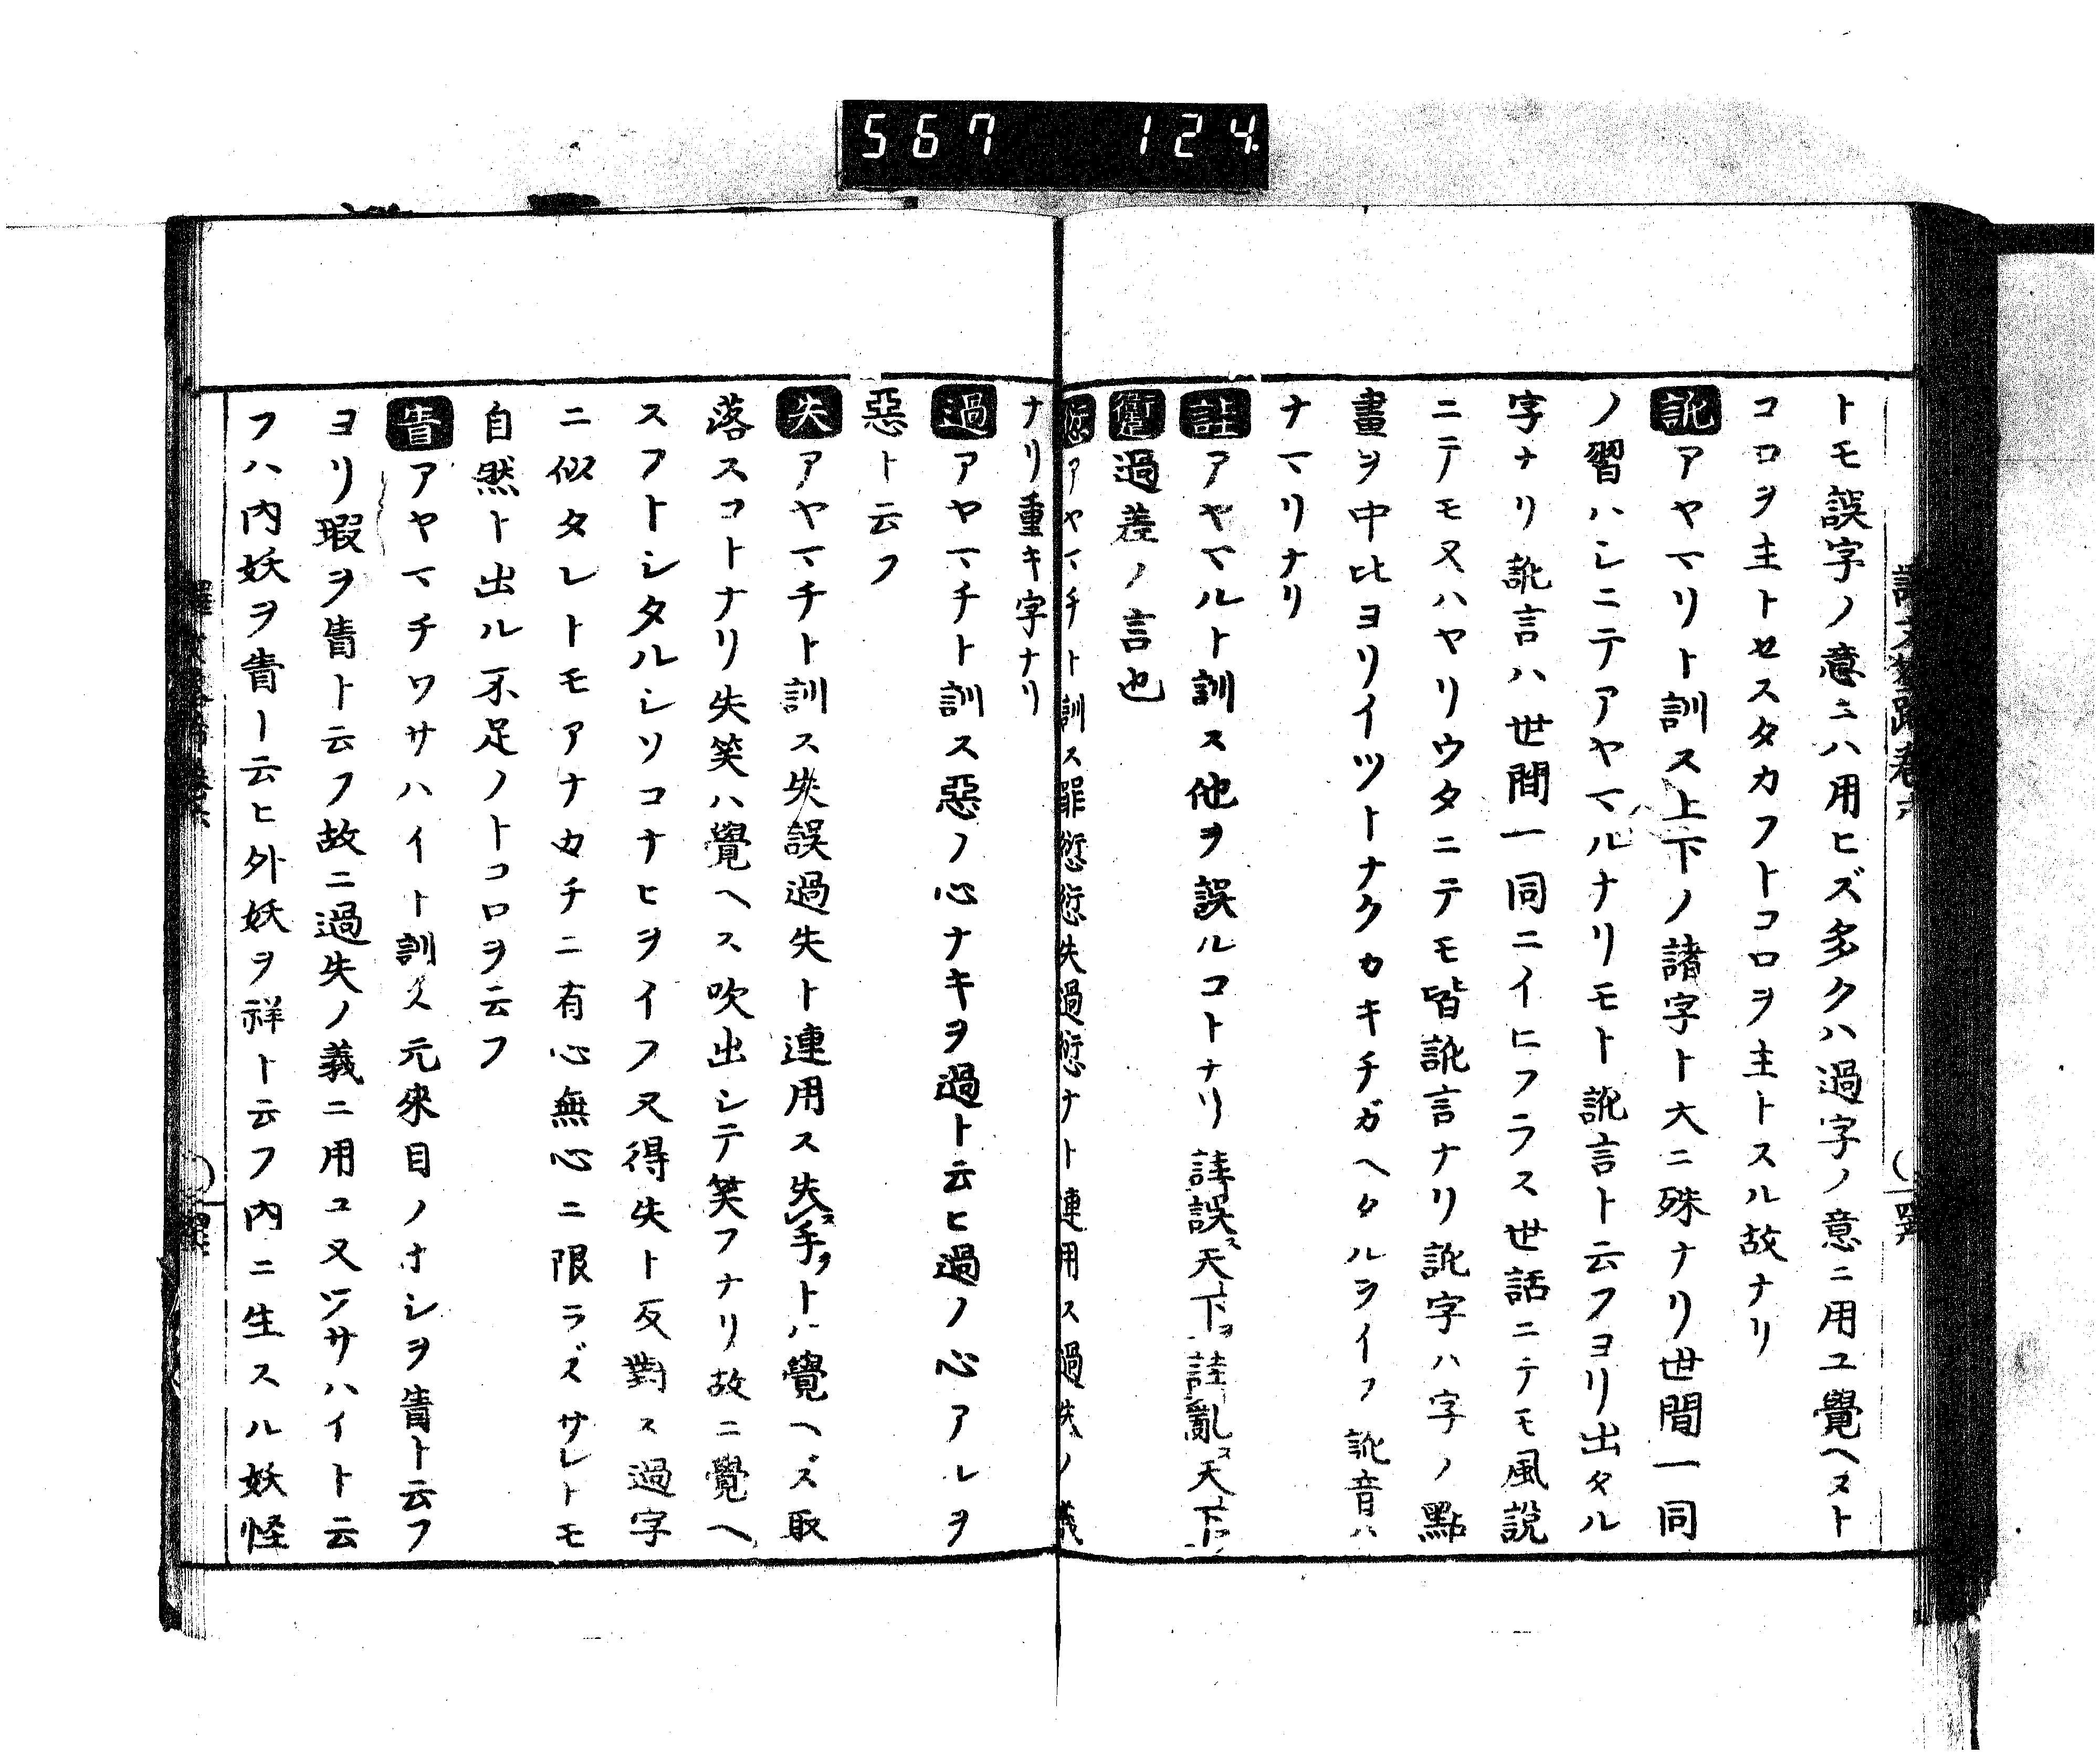 567 124
トモ誤字ノ意ニハ用ヒズ多クハ過字ノ意ニ用ユ覺ヘヌト
コロヲ主トセスタカフトコロヲ主トスル故ナリ
訛アヤマリト訓ス上下ノ諸字ト大ニ殊ナリ世間一同
ノ習ハシニテアヤマルナリモト訛言ト云フヨリ出タル
字ナリ訛言ハ世間一同ニイヒフラス世話ニテモ風説
ニテモ又ハヤリウタニテモ皆訛言ナリ訛字ハ字ノ點
畫ヲ中比ヨリイツトナクカキチガヘタルヲイフ訛音ハ
ナマリナリ
註アヤマルト訓ス他ヲ誤ルコトナリ註誤ス天下ヲ註亂ス天下ヲ
過差ノ言也
愆アヤマチト訓ス罪愆愆失過愆ナト連用ス過失ノ義
ナリ重キ字ナリ
過アヤマチト訓ス惡ノ心ナキヲ過ト云ヒ過ノ心アレヲ
惡ト云フ
失アヤマチト訓ス失誤過失ト連用ス失ス手ヲトハ覺ヘズ取
落スコトナリ失笑ハ覺ヘス吹出シテ笑フナリ故ニ覺ヘ
スフトシタルシソコナヒヲイフ又得失ト反對ス過字
ニ似タレトモアナカチニ有心無心ニ限ラズサレトモ
自然ト出ル不足ノトコロヲ云フ
眚アヤマチワサハイト訓ス元來目ノホシヲ眚ト云フ
ヨリ瑕ヲ眚ト云フ故ニ過失ノ義ニ用ユ又ワサハイト云
フハ内妖ヲ眚ト云ヒ外妖ヲ祥ト云フ内ニ生スル妖怪